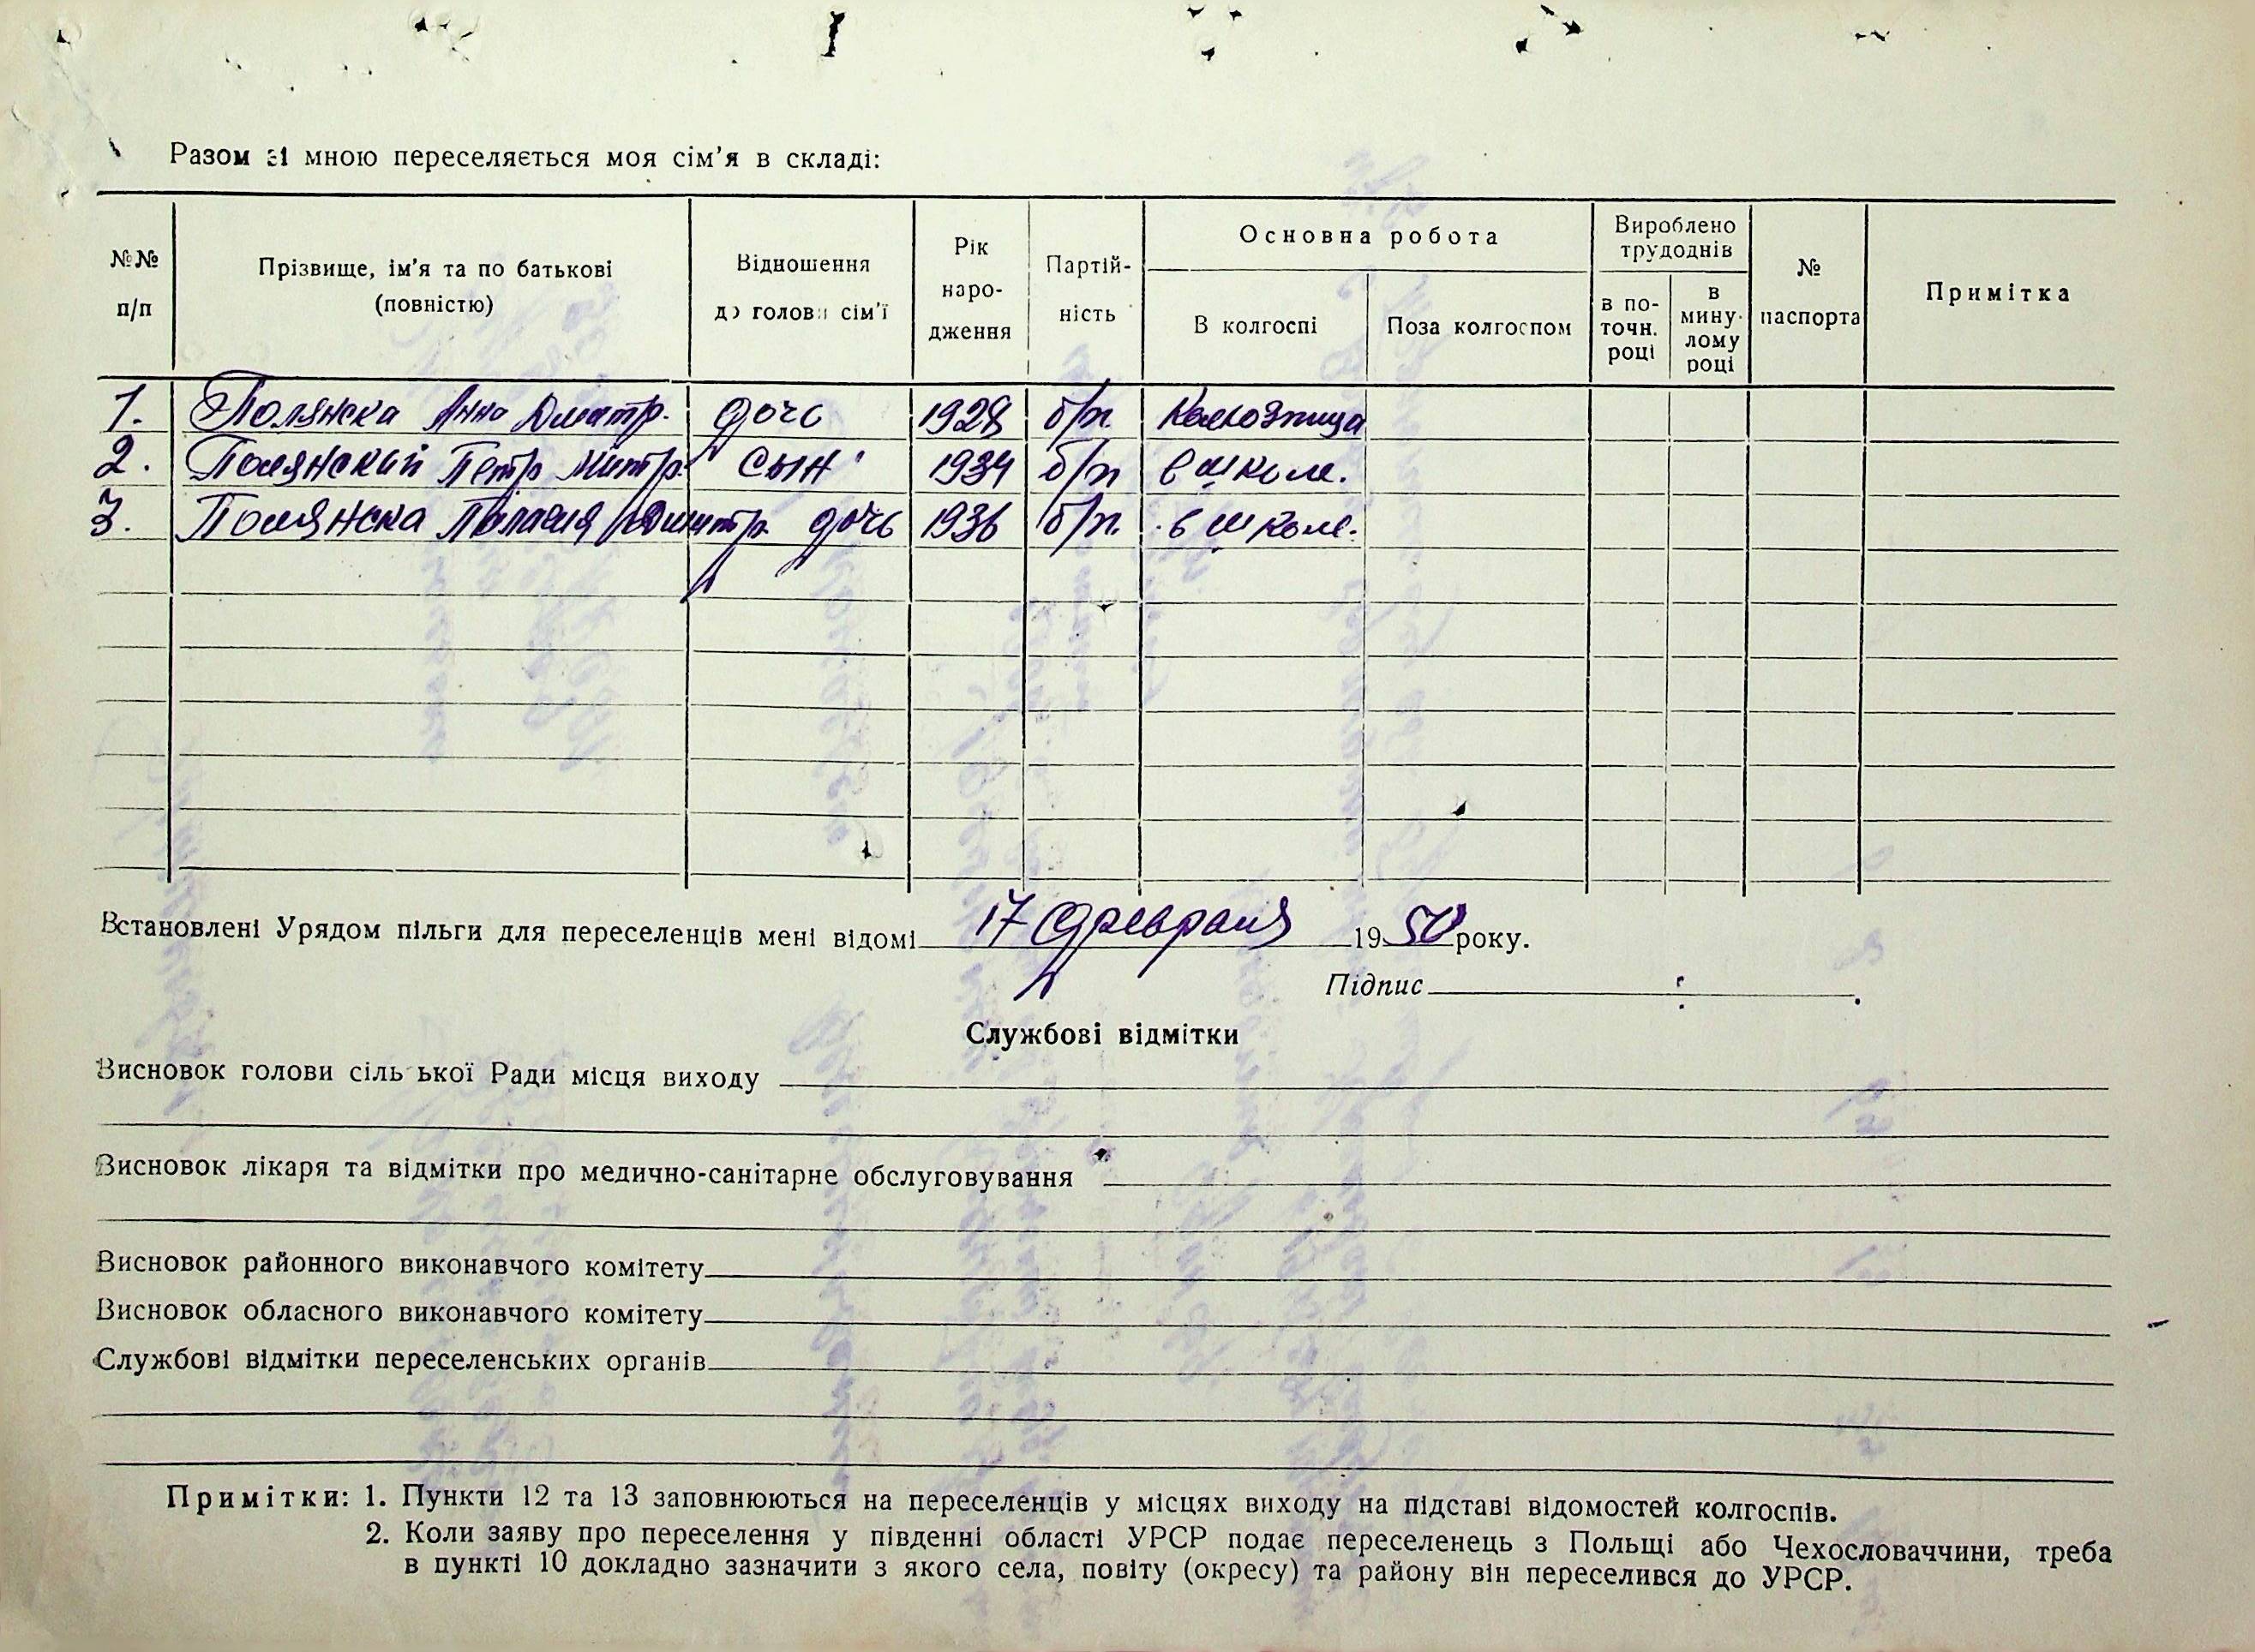 Разом зі мною переселяється моя сім'я в складі:
№№ п/п
Прізвище, ім'я та по батькові (повністю)
Відношення до голови сім'ї
Рік народження
Партій-ність
Основна робота
В колгоспі
Поза колгоспом
Вироблено трудоднів
в по-точн. році
в мину-лому році
№ паспорта
Примітка
1. Полянска Анна Дмитр. дочь 1928 б/п. Колхозница
2. Полянский Петр Митр. сын 1934 б/п в школе.
3. Полянска Палагія Дмитр. дочь 1936 б/п. в школе.
Встановлені Урядом пільги для переселенців мені відомі 17 февраля 1950 року.
Підпис
Службові відмітки
Висновок голови сільської Ради місця виходу
Висновок лікаря та відмітки про медично-санітарне обслуговування
Висновок районного виконавчого комітету
Висновок обласного виконавчого комітету
Службові відмітки переселенських органів
Примітки: 1. Пункти 12 та 13 заповнюються на переселенців у місцях виходу на підставі відомостей колгоспів.
2. Коли заяву про переселення у південні області УРСР подає переселенець з Польщі або Чехословаччини, треба
в пункті 10 докладно зазначити з якого села, повіту (окресу) та району він переселився до УРСР.